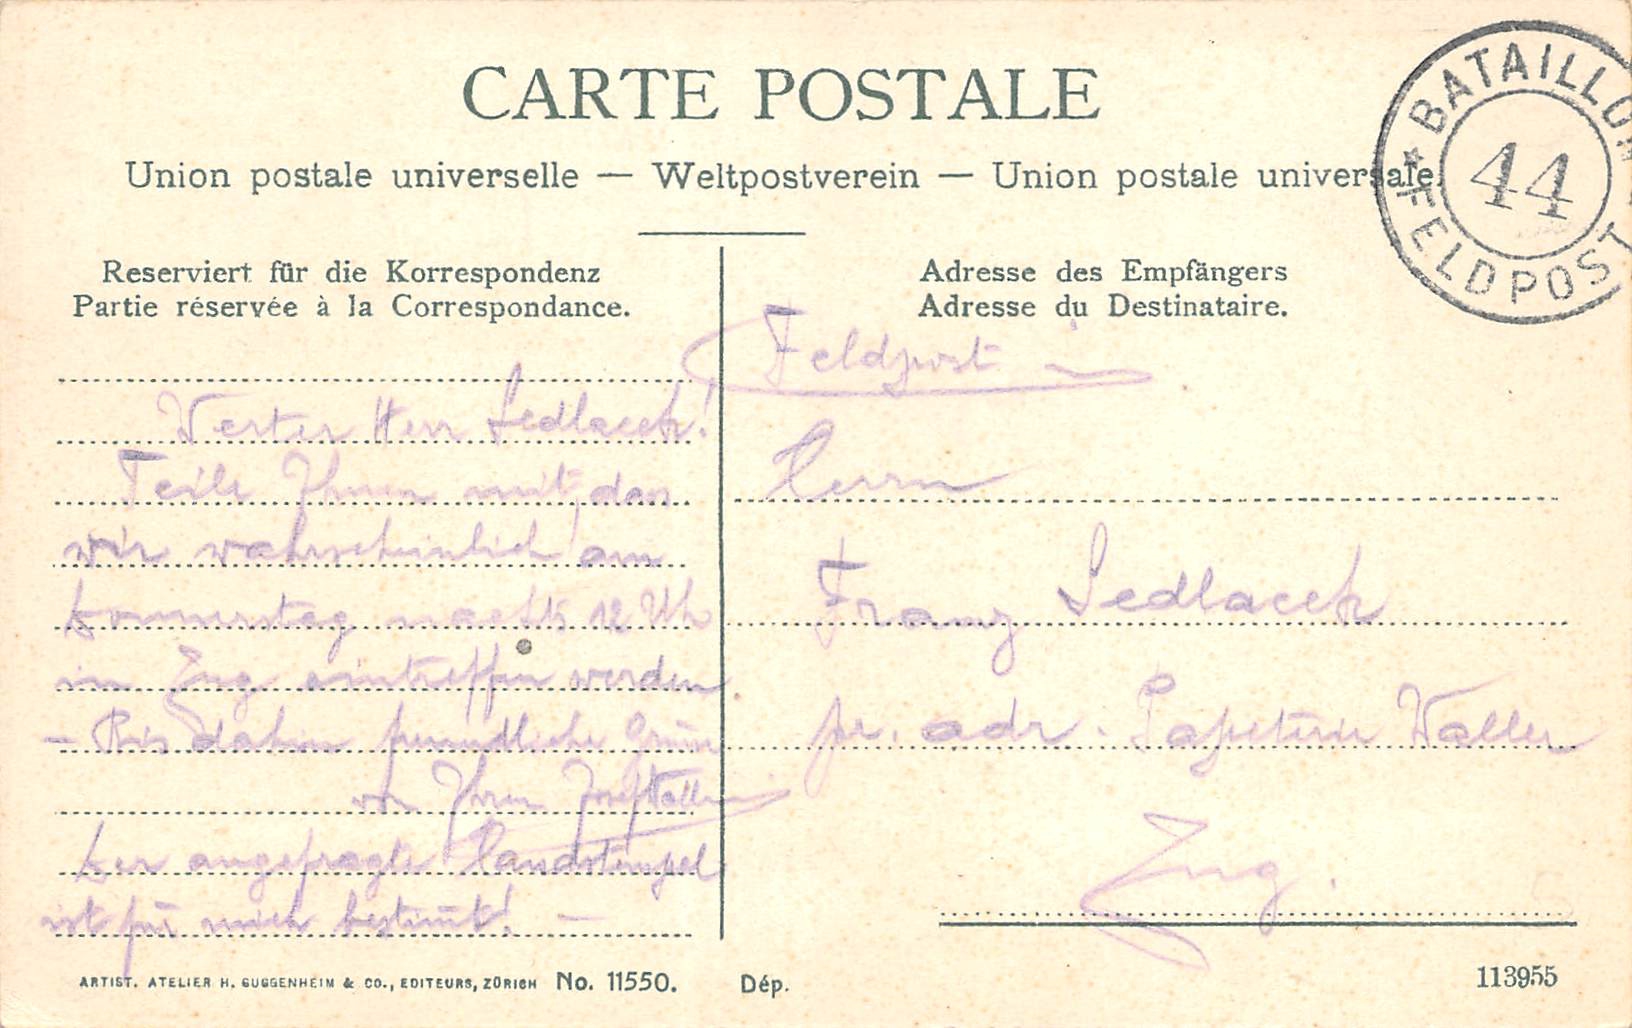 CARTE POSTALE
Union postale universelle — Weltpostverein — Union postale universale.
BATAILLON
44
★ FELDPOST
Reserviert für die Korrespondenz
Partie réservée à la Correspondance.
Adresse des Empfängers
Adresse du Destinataire.
Werter Herr Sedlacek!
Teile Ihnen mit, das
wir wahrscheinlich am
Donnerstag nachts 12 Uh
in Zug eintreffen werden
- Bis dahin freundliche Grüsse
von Ihrem Josef Waller
Der angefragte Handstempel
ist für mich bestimt! —
Feldpost
Herrn
Franz Sedlacek
pr. adr. Papeterie Waller
Zug.
ARTIST. ATELIER H. GUGGENHEIM & CO., EDITEURS, ZÜRICH No. 11550.
Dép.
113955